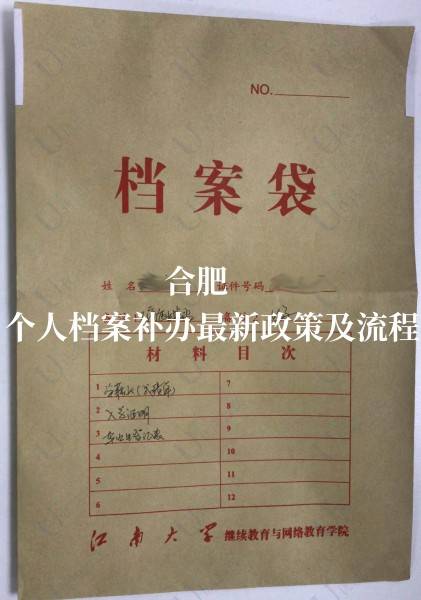 NO.
档案袋
姓 名 证件号码
合肥
个人档案补办最新政策及流程
材料目次
1 学籍表(成绩单) 7
2 入学证明 8
3 毕业生登记表 9
4 10
5 11
6 12
江南大学 继续教育与网络教育学院